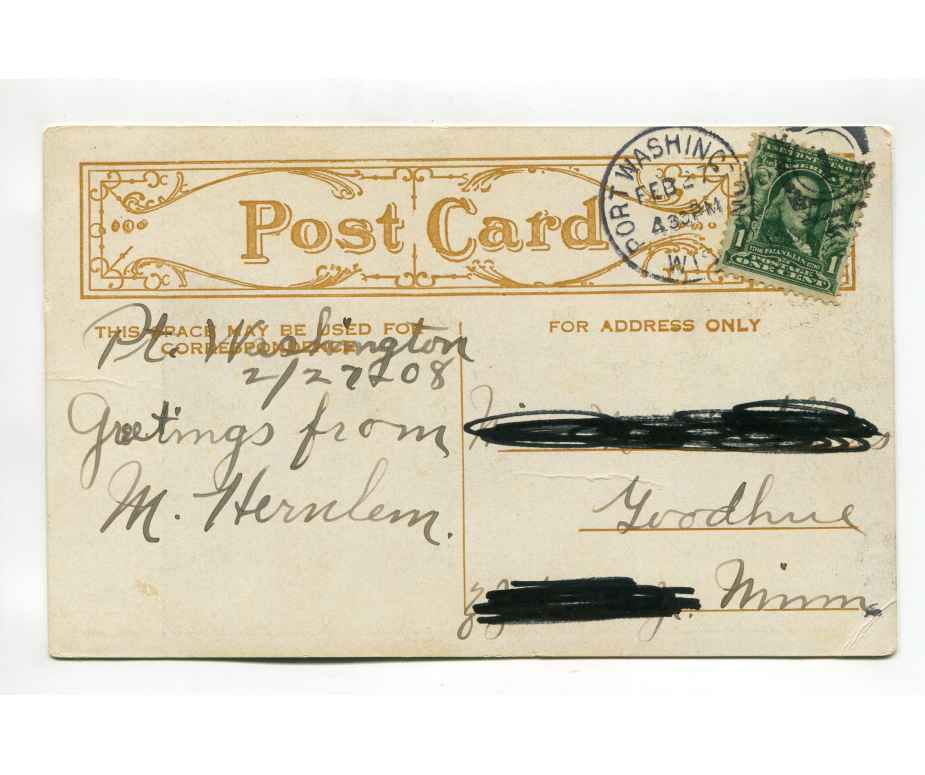 Post Card
PORT WASHING
FEB 27
430PM
WIS
1 1
POSTAGE
ONE CENT
THIS SPACE MAY BE USED FOR
CORRESPONDENCE
FOR ADDRESS ONLY
Pt. Washington
2/27 08
Greetings from
M. Hernlem.
Goodhue
Minn.